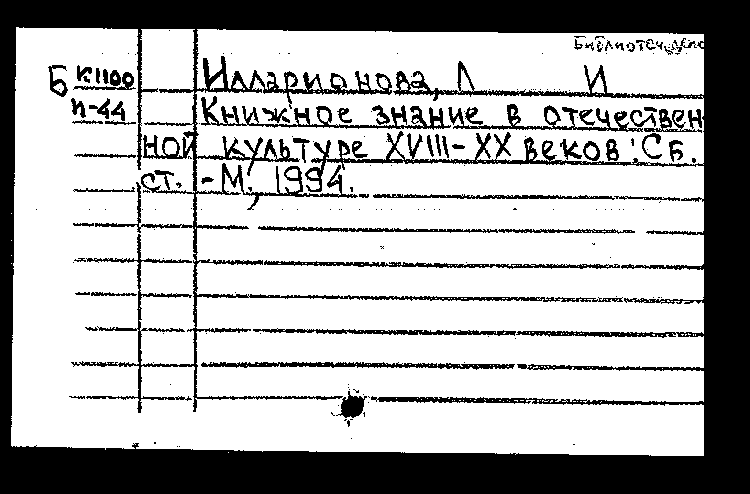 Библиотеч. дело
Б К1100 Илларионова, Л И
И-44 Книжное знание в отечествен
ной культуре XVIII-XX веков: Сб.
ст. - М., 1994.